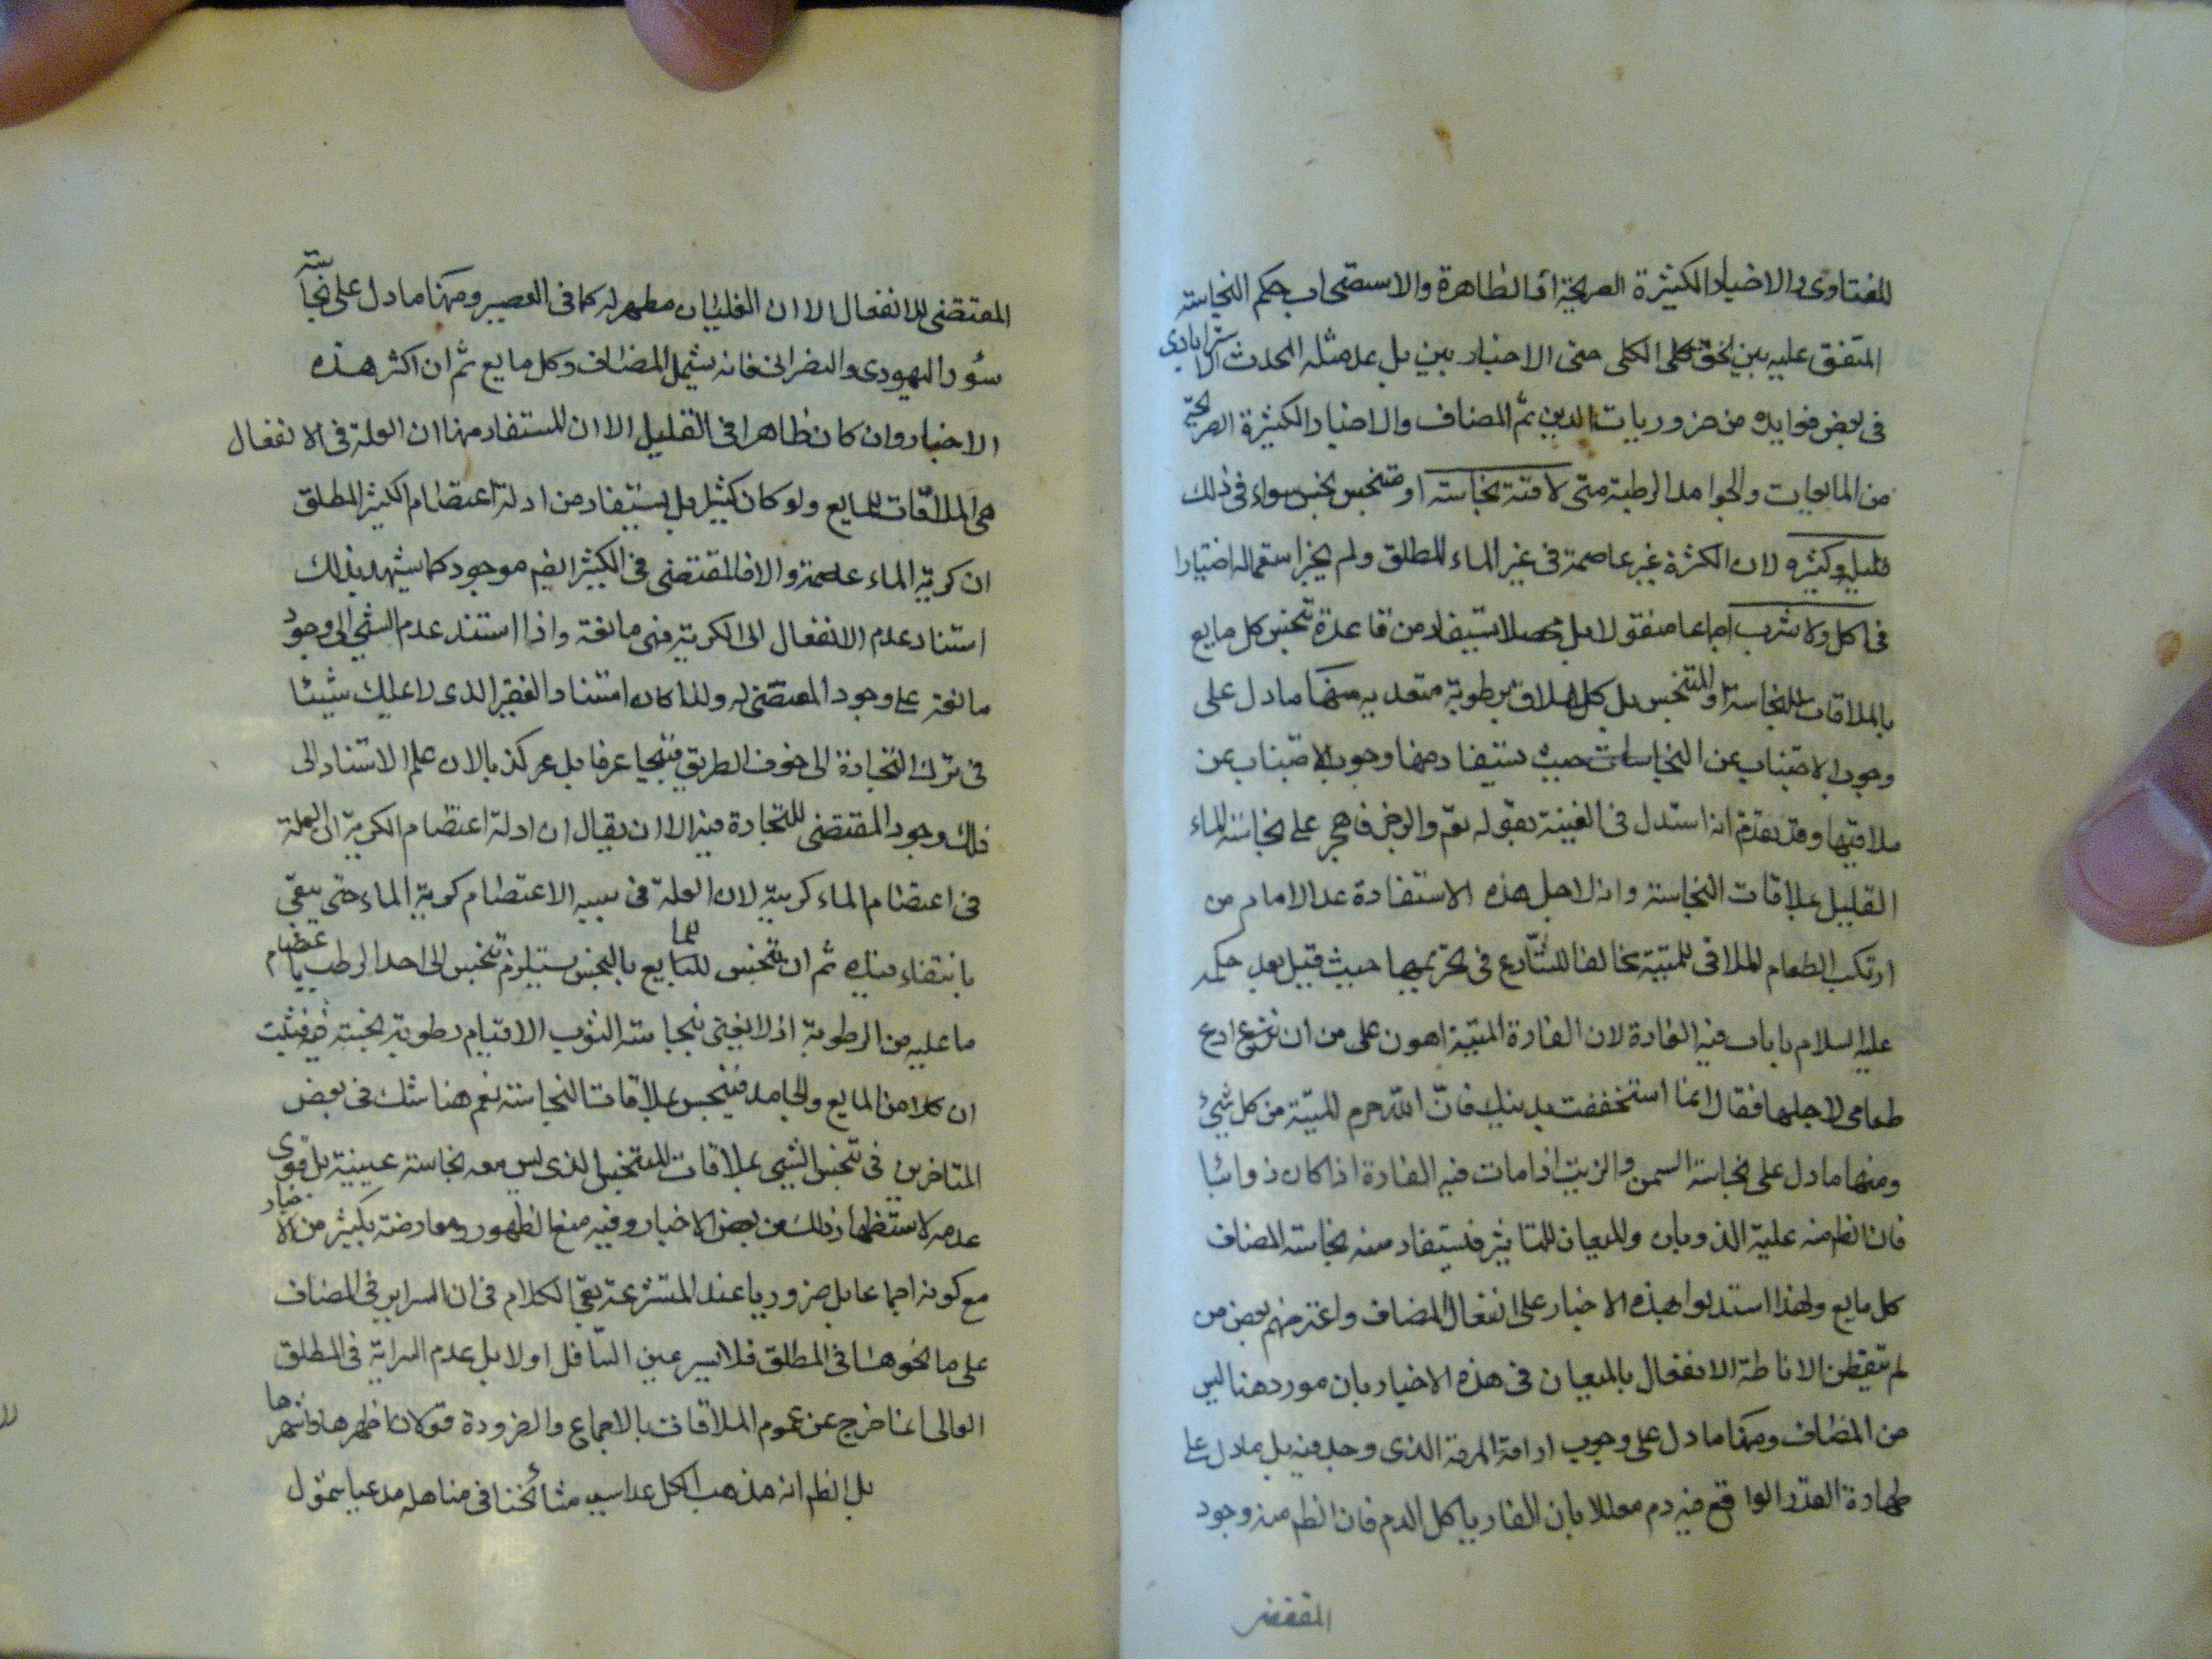 للفتاوى والاخبار الكثيرة الصريحة او الظاهرة والاستصحاب حكم النجاسة
المتفق عليه بين الكلى حتى الاخباريين بل عد مثله المحدث الاسترابادى
فى بعض فوايده من ضروريات الدين ثم المضاف والاخبار الكثيرة الصريحة
من المايعات والجوامد الرطبة متى لاقته نجاسته او متنجس نجس سواء فى ذلك
قليله وكثيره لان الكثرة غير عاصمة فى غير الماء المطلق ولم يجز استعماله اختيارا
فى اكل ولا شرب اجماعا منقولا بل محصلا يستفاد من قاعدة تنجس كل مايع
بالملاقات للنجاسة او المتنجس بل كل ملاق برطوبة متعديه منها ما دل على
وجوب الاجتناب عن النجاسات حيث يستفاد منها وجوب الاجتناب عن
ملاقيها وقد تقدم انه استدل فى الغنية بقوله تعم والرجز فاهجر على نجاسة الماء
القليل بملاقات النجاسة وانه لاجل هذه الاستفادة عد الامام من
ارتكب الطعام الملاقى للميتة مخالفا للشارع فى تحريمها حيث قيل بعد حكمه
عليه السلام بابات فيه الفارة لان الفارة الميتة اهون على من ان ادع
طعامى لاجلها فقال انما استخففت بدينك فان الله حرم الميتة من كل شيئ
ومنها ما دل على نجاسة السمن والزيت اذا مات فيه الفارة اذا كان ذوائبا
فان الظم منه علية الذوبان والميعان للتاثير فيستفاد منه نجاسة المضاف
كل مايع ولهذا استدلوا بهذه الاخبار على انفعال المضاف واعترضهم بعض من
لم يتفطن الاناطة الانفعال بالميعان فى هذه الاخبار بان موردهنا ليس
من المضاف ومنها ما دل على وجوب اراقة المرقة الذى وجد فيه بل ما دل على
طهارة القدر الواقع فيه دم معللا بان النار ياكل الدم فان الظم منه وجود
المقتضى
المقتضى للانفعال الا ان الغليان مطهر له كما فى العصير ومنها ما دل على نجاسته
سؤر اليهودى والنصرانى فانه يشمل المضاف وكل مايع ثم ان اكثر هذه
الاخبار وان كان ظاهرا فى القليل الا ان المستفاد منها ان العلة فى الانفعال
هى الملاقات للمايع ولو كان كثيرا بل يستفاد من ادلة اعتصام الكثير المطلق
ان كرية الماء عاصمة والا فالمقتضى فى الكثير ايضم موجود كما يشهد بذلك
استناد عدم الانفعال الى الكرية فهى مانعة واذا استند عدم الشيئ الى وجود
مانعه على وجود المقتضى له ولذا كان استناد الفقير الذى لا يملك شيئا
فى ترك التجارة الى خوف الطريق قبيحا عرفا بل عد كذبا لان علم الاستناد الى
ذلك وجود المقتضى للتجارة فيه الا ان يقال ان ادلة اعتصام الكرية ان العلة
فى اعتصام الماء كريته لان العلة فى سببه الاعتصام كرية الماء حتى يبقى
بانتفاء قيده ثم ان تنجس المايع بالنجس يستلزم تنجس الى احد الرطب
ما عليه من الرطوبة اذ لا يعنى بنجاسة الثوب الا قيام رطوبة نجسة فيه فيثبت
ان كلا من المايع والجامد فينجس بملاقات النجاسة نعم هنا شك فى بعض
المتاخرين فى تنجس الشيئ بملاقات المتنجس الذى ليس معه نجاسة عينية بل قوى
عدمه لاستظهار ذلك من بعض الاخبار وفيه منع الظهور ومعارضته بكثير من الاخبار
مع كونه اجماعا بل ضروريا عند المتشرعة بقى الكلام فى ان السراية فى المضاف
على ما نحوها فى المطلق فلا يسر عين السافل اولا بل عدم السراية فى المطلق
العالى انما خرج عن عموم الملاقات بالاجماع والضرورة قولان اظهرها واشهرها
بل الظم انه مذهب الكل عدا سيد مشائخنا فى مناهله مدعيا